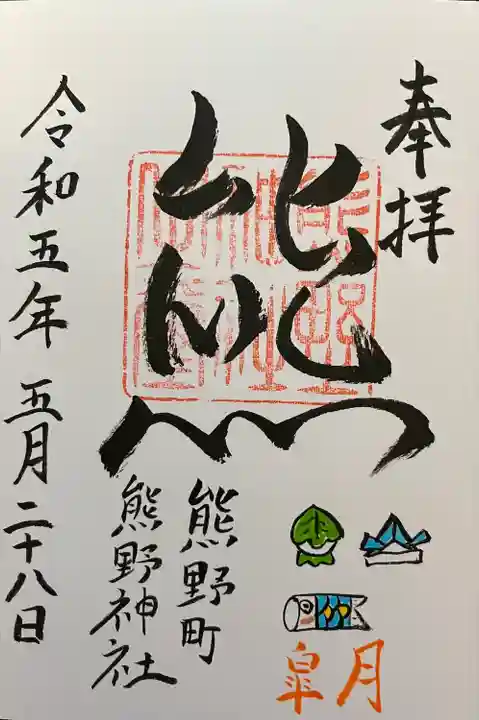 奉拝
熊
熊野町
熊野神社
令和五年 五月二十八日
皐月